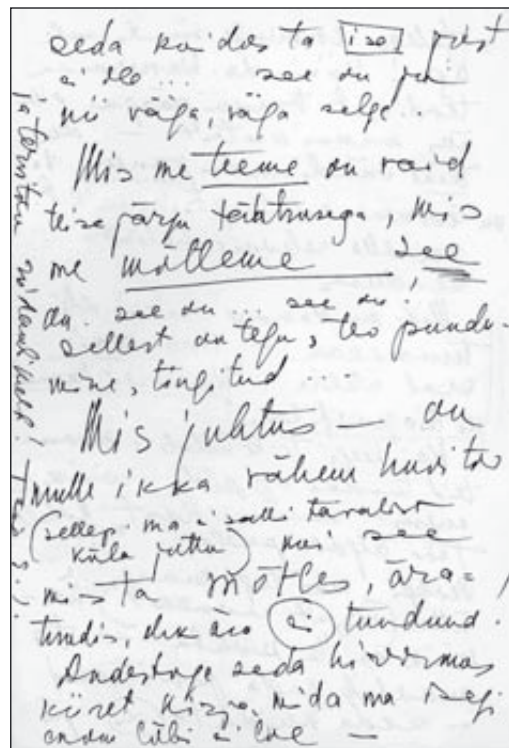 seda kuidas ta ise just
ei ole... see on ju
nii väga, väga selge.
Mis me teeme on vaid
teise järgu tähtsusega, mis
me mõtleme, see
on. see on... see on.
sellest on tegu, teo puudu-
mine, tingitud ...
Mis juhtus — on
mulle ikka vähem huvitav
(sellepä ma ei salli tavalist
küla juttu) kui see
mis ta mõtles, ära-
tundis, ehk ära ei tundund.
Andestage seda hirmsas
kiiret kirja, mida ma isegi
enam läbi ei loe —
ja tervitan südamlikult!